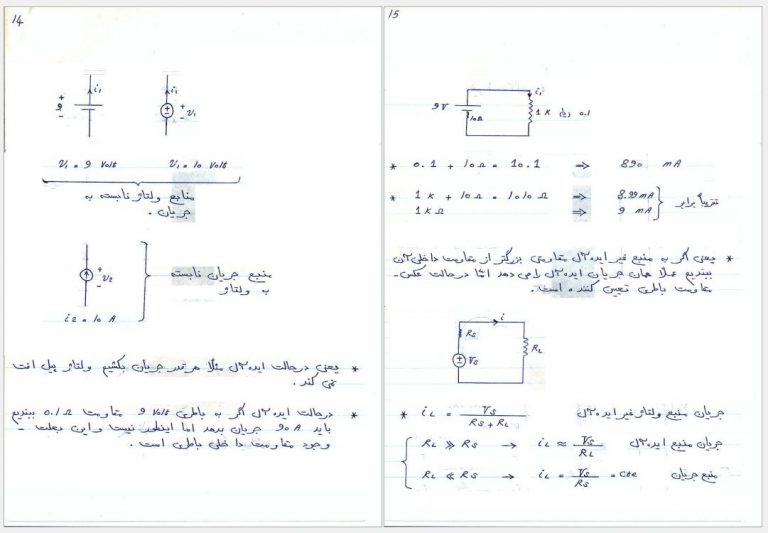 14
+ 9 - i₁
i₁ + v₁ -
V₁ = 9 Volt V₁ = 10 Volt
منابع ولتاژ نابسته به
جریان .
v₂
منبع جریان نابسته
به ولتاژ
i₂ = 10 A
* یعنی درحالت ایده آل مثلاً هر قدر جریان بکشیم ولتاژ پیل افت
نمی کند .
* درحالت ایده آل اگر به باطری 9 Volt مقاومت 0.1 Ω ببندیم
باید 90 A جریان بدهد اما اینطور نیست و این بعلت -
وجود مقاومت داخلی باطری است .
15
i₁
9V 10Ω 1 K یا 0.1
* 0.1 + 10 Ω = 10.1 ⇒ 890 mA
* 1 K + 10 Ω = 1010 Ω ⇒ 8.99 mA
1 K Ω ⇒ 9 mA
تقریباً برابر
* یعنی اگر به منبع غیر ایده آل مقاومتی بزرگتر از مقاومت داخلی آن
ببندیم عملا همان جریان ایده آل را می دهد امّا درحالت عکس -
مقاومت باطری تعیین کننده است .
i
RS
VS RL
* iL = VS / RS + RL جریان منبع ولتاژ غیر ایده آل
RL ≫ RS → iL ≈ VS / RL جریان منبع ایده آل
RL ≪ RS → iL = VS / RS = cte منبع جریان